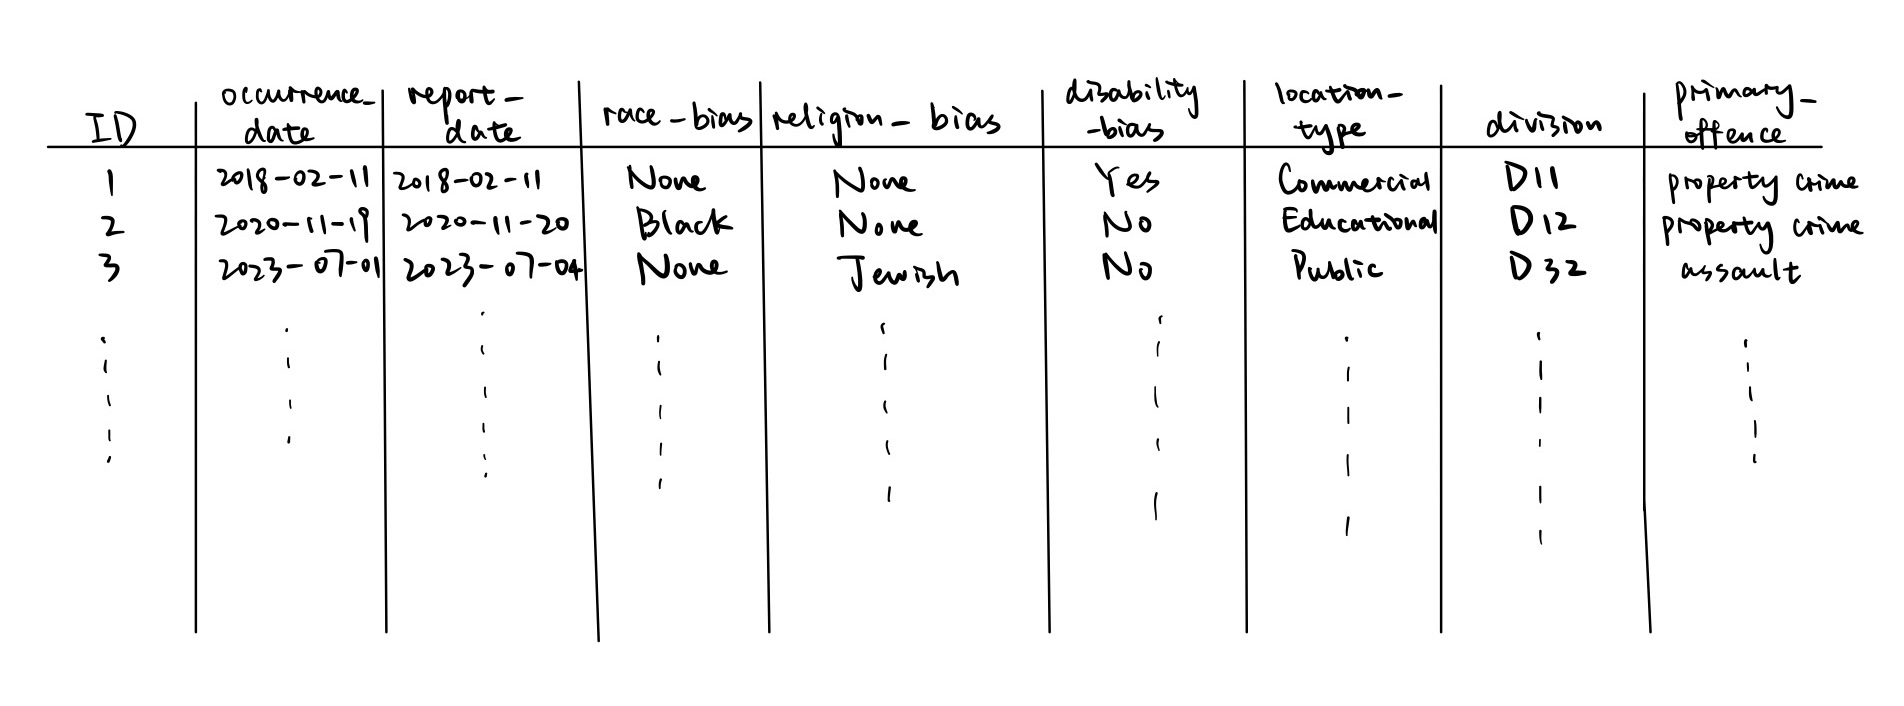 ID occurrence_date report_date race_bias religion_bias disability_bias location_type division primary_offence
1 2018-02-11 2018-02-11 None None Yes Commercial D11 property crime
2 2020-11-19 2020-11-20 Black None No Educational D12 property crime
3 2023-07-01 2023-07-04 None Jewish No Public D32 assault